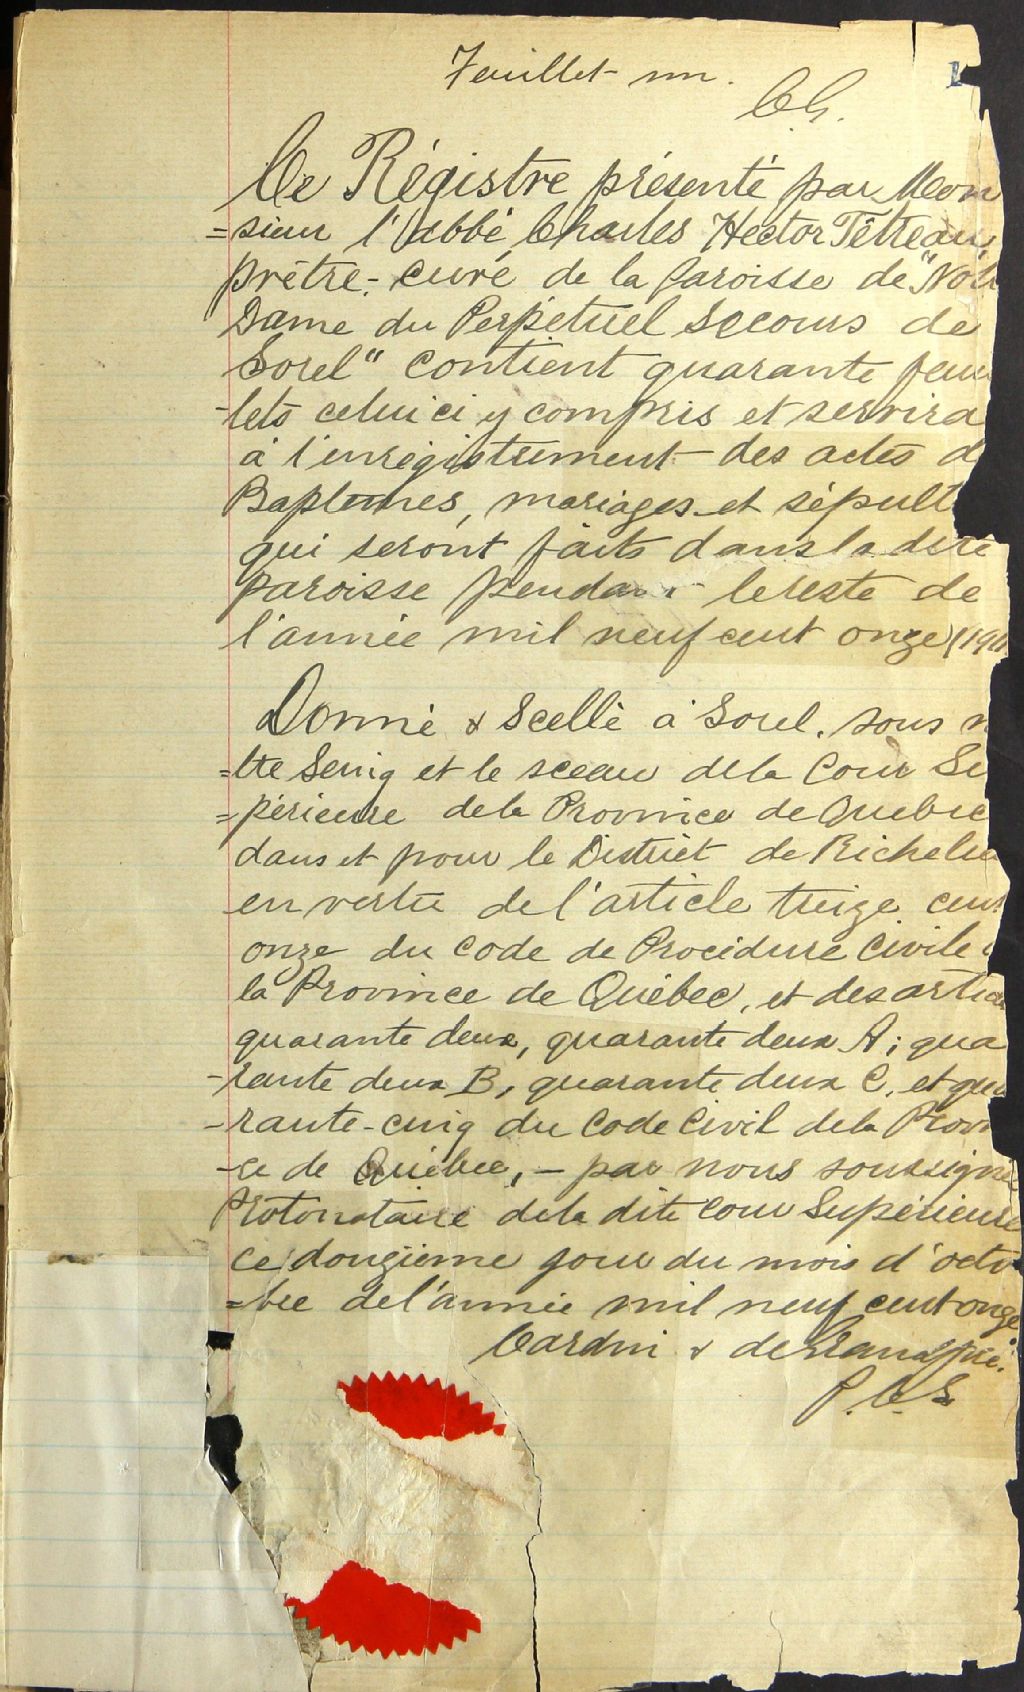 Feuillet un.
1
C.G.
Ce Régistre présenté par Mon
=sieur l'abbé Charles Hector Têtreau,
prêtre-curé de la Paroisse de "Notr
Dame du Perpétuel Secours de
Sorel" contient quarante feuil
-lets celui ci y compris et servira
à l'enrégistrement des actes d
Baptemes, mariages et sépult
qui seront faits dans la dite
paroisse pendant le reste de
l'année mil neuf cent onze (1911
Donné & Scellé à Sorel, sous n
=tre Seing et le sceau de la Cour Su
=périeure de la Province de Quebec
dans et pour le District de Richelieu
en vertu de l'article treize cent
onze du Code de Procédure Civile
la Province de Québec, et des artic
quarante deux, quarante deux A; qua
-rante deux B, quarante deux C, et qua
-rante-cinq du Code Civil de la Provin
-ce de Québec, - par nous soussigné
Protonotaire de la dite Cour Supérieure
ce douzième jour du mois d'octo
=bre de l'année mil neuf cent onze.
Cardin & de Grandpré.
P.C.S.